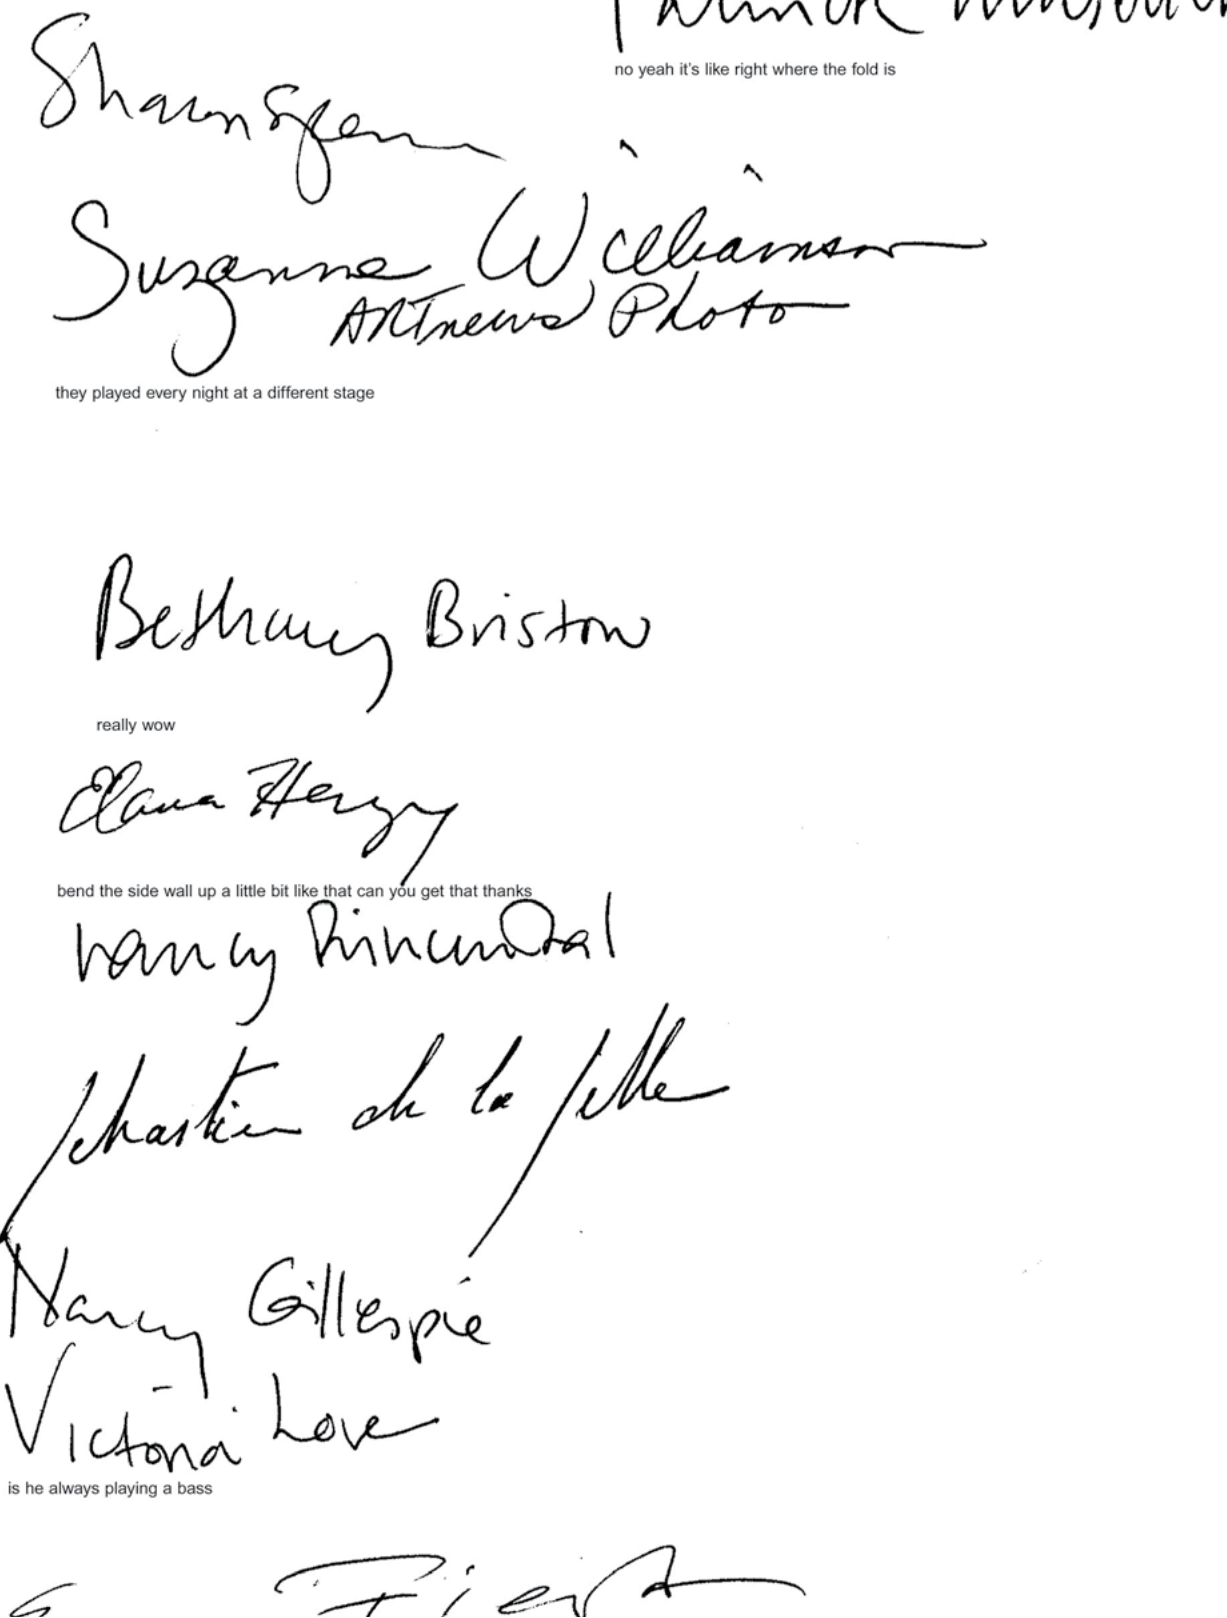 no yeah it's like right where the fold is
Shaun
Suzanne Williamson
ARTnews Photo
they played every night at a different stage
Bethany Bristow
really wow
Elana
bend the side wall up a little bit like that can you get that thanks
Nancy
Sébastien de la Selle
Nancy Gillespie
Victoria Love
is he always playing a bass